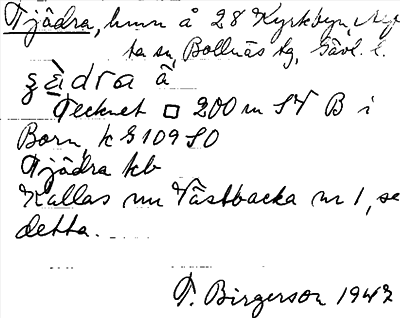 Tjädra, hmn å 28 Kyrkbyn, Alf
ta sn, Bollnäs tg, Gävl. l.
Tecknet □ 200 m SV B i
Born, k G 109 SO
Tjädra kb
Kallas nu Västbacka nr 1, se
detta.
T. Birgerson 1947